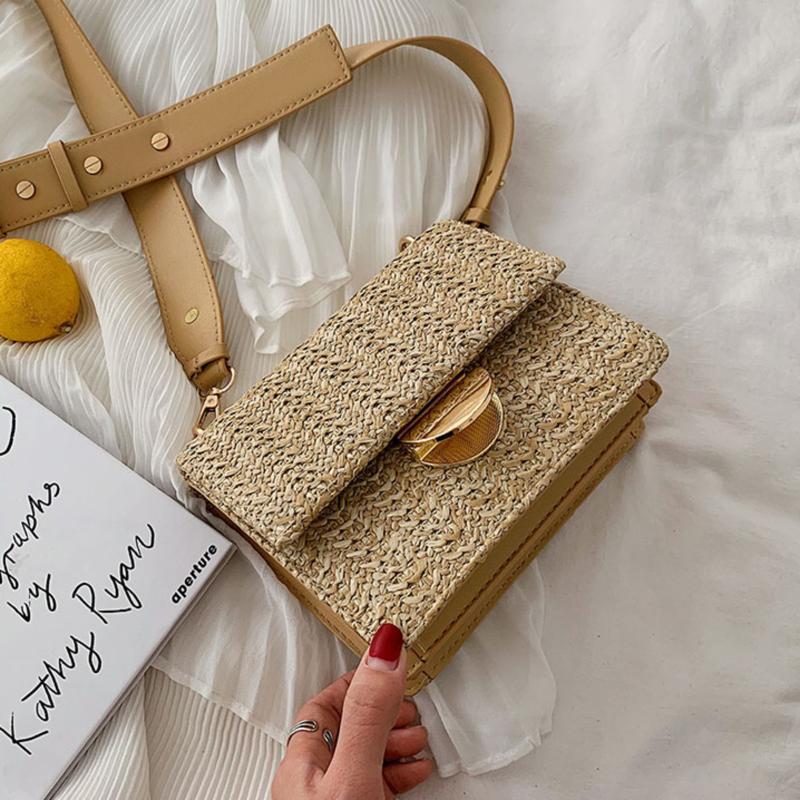 graphs
by
Kathy Ryan
aperture